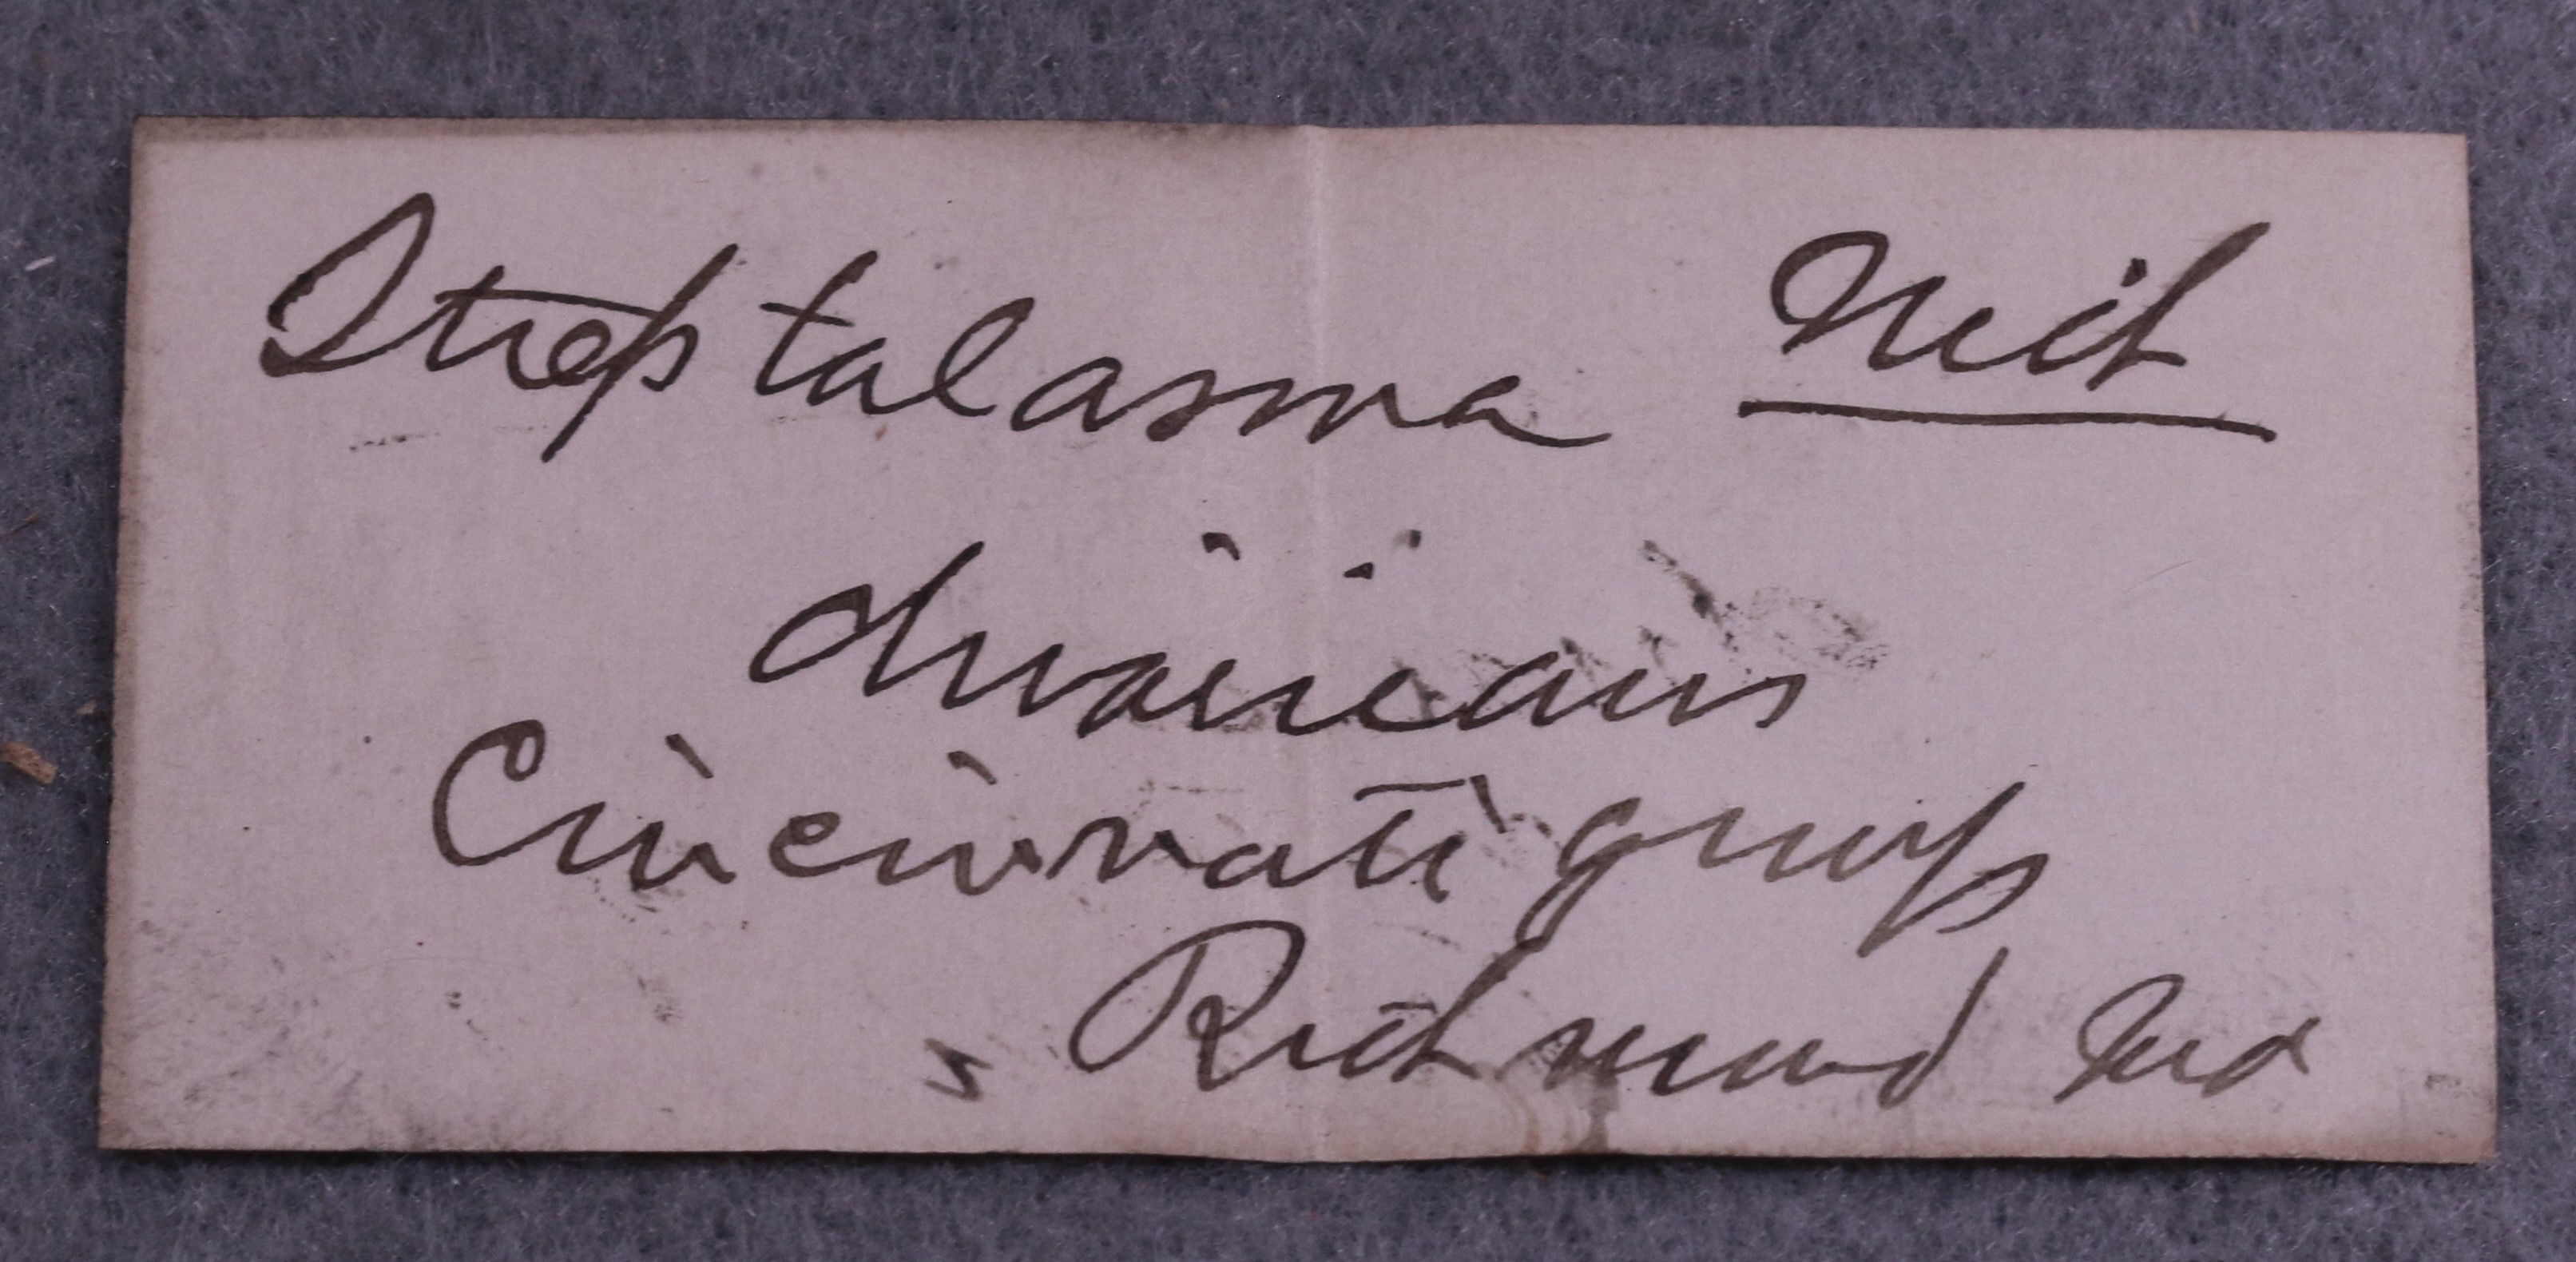 Streptalasma Nich
divaricans
Cincinnati group
Richmond Ind